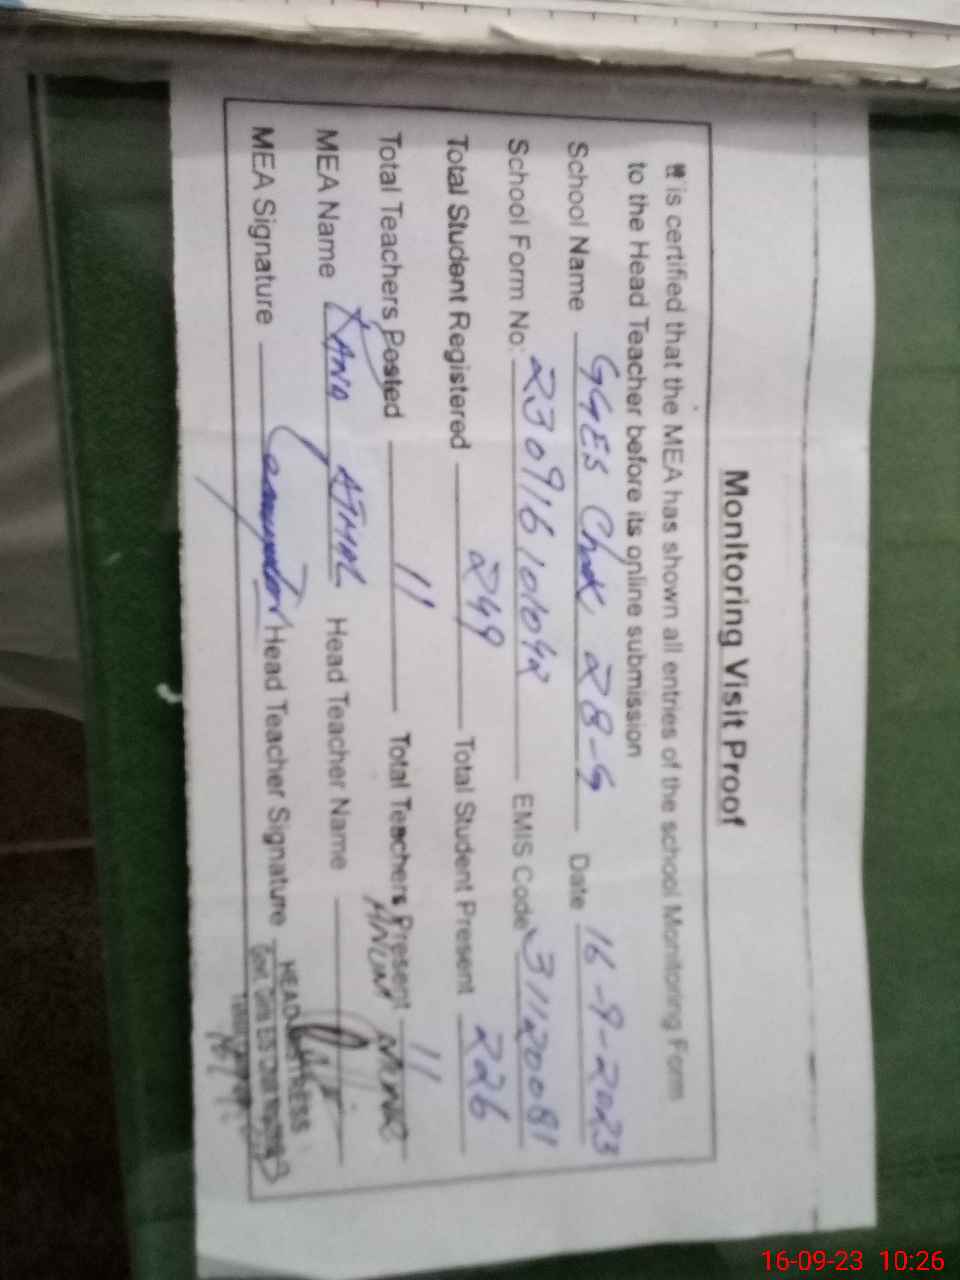 Monitoring Visit Proof
It is certified that the MEA has shown all entries of the school Monitoring Form
to the Head Teacher before its online submission
School Name GGES Chak 28-G Date 16-9-2023
School Form No: 230916101042 EMIS Code 31120081
Total Student Registered 249 Total Student Present 226
Total Teachers Posted 11 Total Teachers Present 11
MEA Name RANA AJMAL Head Teacher Name ANUM
MEA Signature Head Teacher Signature
HEADMISTRESS
16-09-23 10:26